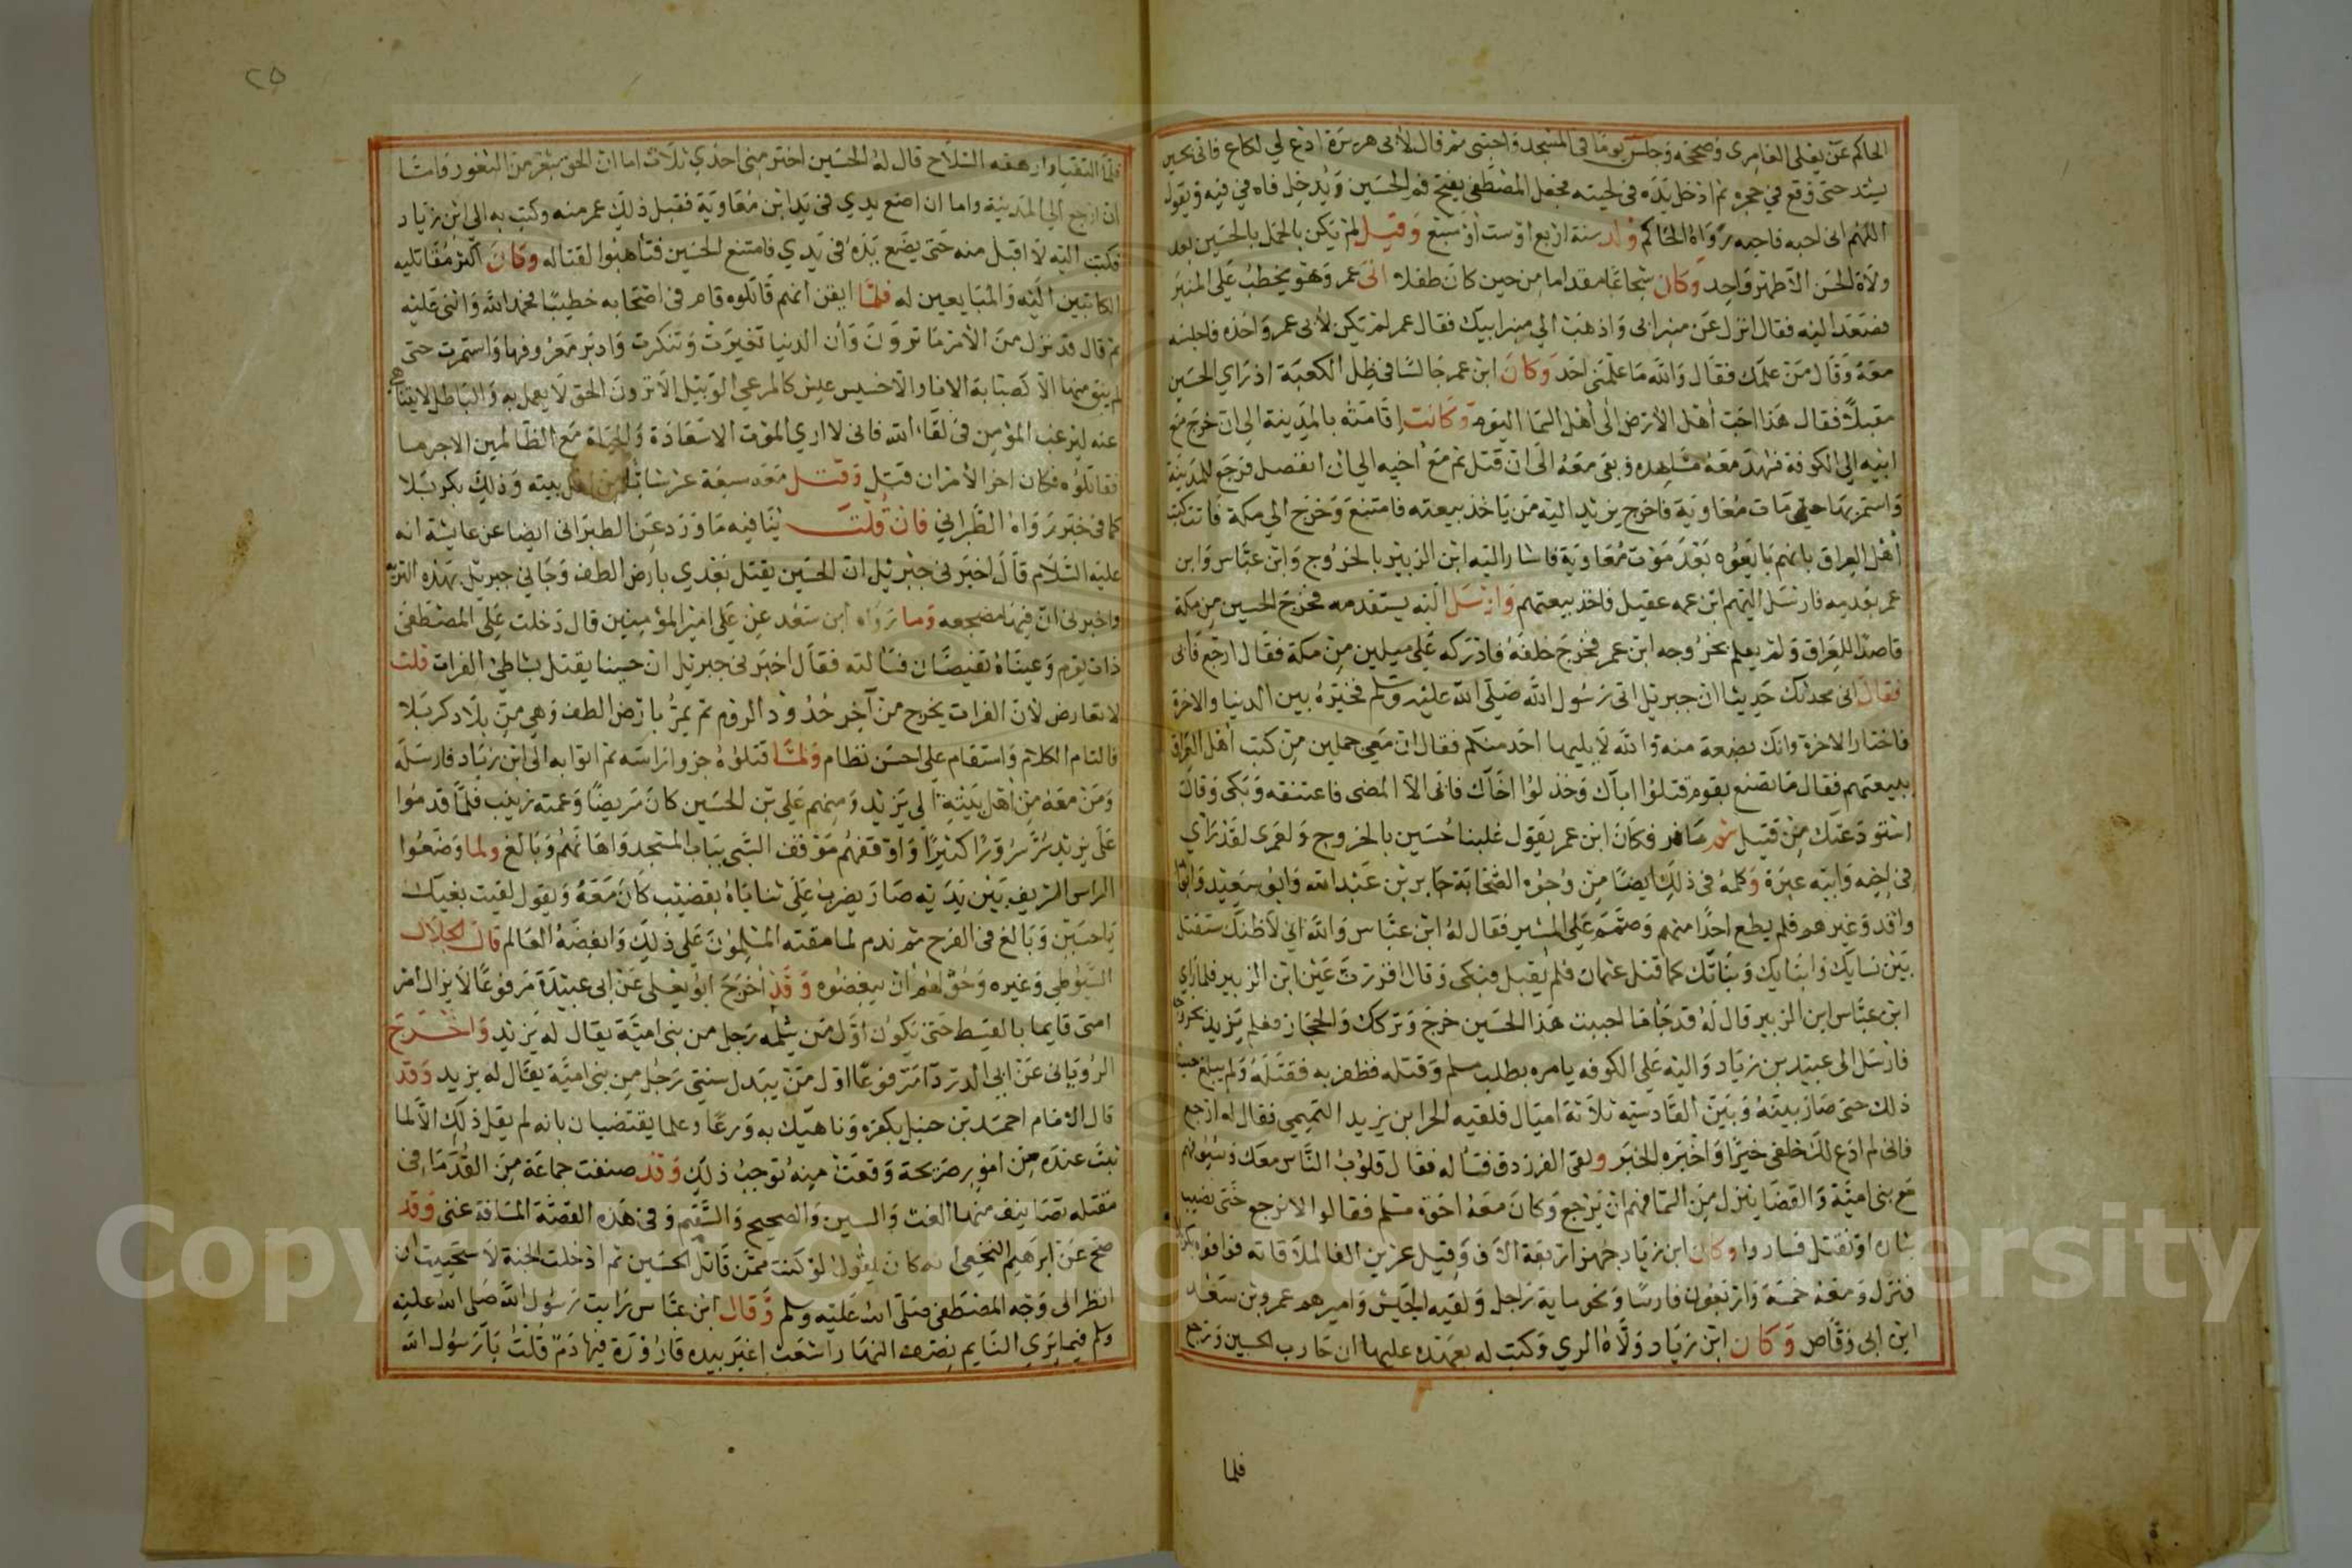 الحاكم عن يعلى العامرى وصححه وجلس يوما فى المسجد واحتبى ثم قال لأبى هريرة ادع لي لكاع فاتى بحسين
يشتد حتى وقع في حجره ثم ادخل يده فى لحيته فجعل المصطفى يفتح فم الحسين ويدخل فاه في فيه ويقول
اللهم انى احبه فاحبه رواه الحاكم ولد سنة اربع او ست او سبع وقيل لم يكن بالحمل بالحسين بعد
ولادة الحسن الا طهر واحد وكان شجاعا مقداما من حين كان طفلا اتى عمر وهو يخطب على المنبر
فصعد اليه فقال انزل عن منبر ابى واذهب الي منبر ابيك فقال عمر لم يكن لأبى عمر واخذه فاجلسه
معه وقال من علمك فقال والله ما علمنى احد وكان ابن عمر جالسا فى ظل الكعبة اذ راي الحسين
مقبلا فقال هذا احب أهل الأرض الى أهل السما اليوم وكانت اقامته بالمدينة الي ان خرج مع
ابيه الي الكوفة فشهد معه مشاهده وبقى معه الى ان قتل ثم مع أخيه الي ان انفصل فرجع للمدينة
واستمر بها حتى مات معاوية فاخرج يزيد اليه من ياخذ بيعته فامتنع وخرج الي مكة فاتت كتب
أهل العراق بانهم بايعوه بعد موت معاوية فاشار اليه ابن الزبير بالخروج وابن عباس وابن
عمر بعدمه فارسل اليهم ابن عمه عقيل فاخذ بيعتهم وارسل اليه يستقدمه فخرج الحسين من مكة
قاصدا للعراق ولم يعلم بخروجه ابن عمر فخرج خلفه فادركه على ميلين من مكة فقال ارجع فأبى
فقال انى محدثك حديثا ان جبريل اتى رسول الله صلى الله عليه وسلم فخيره بين الدنيا والاخرة
فاختار الاخرة وانك بضعة منه والله لا يليها احد منكم فقال ان معي حملين من كتب أهل العراق
ببيعتهم فقال ما تصنع بقوم قتلوا اباك وخذلوا اخاك فابى الا المضى فاعتنقه وبكى وقال
استودعتك من قتيل ثم سافر فكان ابن عمر يقول غلبنا حسين بالخروج ولعمرى لقد راي
فى اخيه وابيه عبرة وكلمه فى ذلك ايضا من وجوه الصحابة جابر بن عبد الله وابو سعيد وابو
واقد وغيرهم فلم يطع احدا منهم وصمم على المسير فقال له ابن عباس والله اني لاظنك ستقتل
بين نسايك وابنايك وبناتك كما قتل عثمان فلم يقبل فبكى وقال اقررت عين ابن الزبير فلما راي
ابن عباس ابن الزبير قال له قد جا ما احببت هذا الحسين خرج وتركك والحجاز فعلم يزيد بخروجه
فارسل الى عبيد بن زياد واليه على الكوفه يامره بطلب مسلم وقتله فظفر به فقتله ولم يبلغ حسينا
ذلك حتى صار بينه وبين القادسيه ثلاثة اميال فلقيه الحر ابن يزيد التميمي فقال له ارجع
فانى لم ادع لك خلفى خيرا واخبره الخبر ولقى الفرزدق فساله فقال قلوب الناس معك وسيوفهم
مع بنى امية والقضا ينزل من السما فهم ان يرجع وكان معه اخوة مسلم فقالوا لا نرجع حتى نصيب
بثاره او نقتل فساروا وكان ابن زياد جهز اربعة الاف وقيل عشرين الفا لملاقاته فوافوه بكربلا
فنزل ومعه خمسة واربعون فارسا ونحو ماية راجل ولقيه الجيش واميرهم عمرو بن سعد
ابن ابى وقاص وكان ابن زياد ولاه الري وكتب له بعهده عليها ان حارب الحسين ورجع
فلما
٢٥
فلما التقيا وارهقه السلاح قال له الحسين اختر منى احدي ثلاث اما ان الحق بثغر من الثغور واما
ان ارجع الي المدينة واما ان اضع يدي فى يد ابن معاوية فقبل ذلك عمر منه وكتب به الى ابن زياد
فكتب اليه لا اقبل منه حتى يضع يده فى يدي فامتنع الحسين فتأهبوا لقتاله وكان اكثر مقاتليه
الكاتبين اليه والمبايعين له فلما ايقن انهم قاتلوه قام فى اصحابه خطيبا فحمد الله واثنى عليه
ثم قال قد نزل من الأمر ما ترون وأن الدنيا تغيرت وتنكرت وادبر معروفها واستمرت حتى
لم يبق منها الا كصبابة الانا والا خسيس عيش كالمرعي الوبيل الا ترون الحق لا يعمل به والباطل لا يتناهى
عنه ليرغب المؤمن فى لقاء الله فانى لا اري الموت الا سعادة والحياة مع الظالمين الا جرما
فقاتلوه فكان اخر الأمر ان قتل وقتل معه سبعة عشر شابا من أهل بيته وذلك بكربلا
كما فى خبر رواه الطبراني فان قلت ينافيه ما ورد عن الطبرانى ايضا عن عايشة انه
عليه السلام قال اخبرنى جبريل ان الحسين يقتل بعدي بارض الطف وجاني جبريل بهذه التربة
واخبرنى ان فيها مضجعه وما رواه ابن سعد عن على امير المؤمنين قال دخلت على المصطفى
ذات يوم وعيناه تفيضان فسالته فقال اخبرنى جبريل ان حسينا يقتل بشاطئ الفرات قلت
لا تعارض لأن الفرات يخرج من آخر حدود الروم ثم يمر بارض الطف وهي من بلاد كربلا
فالتام الكلام واستقام على احسن نظام ولما قتلوه جزوا راسه ثم اتوا به الى ابن زياد فارسله
ومن معه من أهل بيته الي يزيد ومنهم على بن الحسين كان مريضا وعمته زينب فلما قدموا
على يزيد سر سرورا كثيرا واوقفهم موقف السبى بباب المسجد واهانهم وبالغ ولما وضعوا
الراس الشريف بين يديه صار يضرب على ثناياه بقضيب كان معه ويقول لقيت بغيك
ياحسين وبالغ فى الفرح ثم ندم لما مقته المسلمون على ذلك وابغضه العالم قال الجلال
السيوطي وغيره وحق لهم ان يبغضوه وقد أخرج ابو يعلى عن ابى عبيدة مرفوعا لا يزال أمر
امتى قايما بالقسط حتى يكون اول من يثلمه رجل من بنى امية يقال له يزيد واخرج
الرويانى عن ابي الدردا مرفوعا اول من يبدل سنتي رجل من بنى امية يقال له يزيد وقد
قال الامام احمد بن حنبل بكفره وناهيك به ورعا وعلما يقتضيان بانه لم يقل ذلك الا لما
ثبت عنده من امور صريحة وقعت منه توجب ذلك وقد صنفت جماعة من القدما فى
مقتله تصانيف فيها الغث والسمين والصحيح والسقيم وفى هذه القصة المساقة غنى وقد
صح عن ابرهيم النخعي انه كان يقول لو كنت ممن قاتل الحسين ثم ادخلت الجنة لاستحييت ان
انظر الى وجه المصطفى صلى الله عليه وسلم وقال ابن عباس رايت رسول الله صلى الله عليه
وسلم فيما يرى النايم نصف النهار اشعث اغبر بيده قارورة فيها دم قلت يارسول الله
Copyright © King Saud University